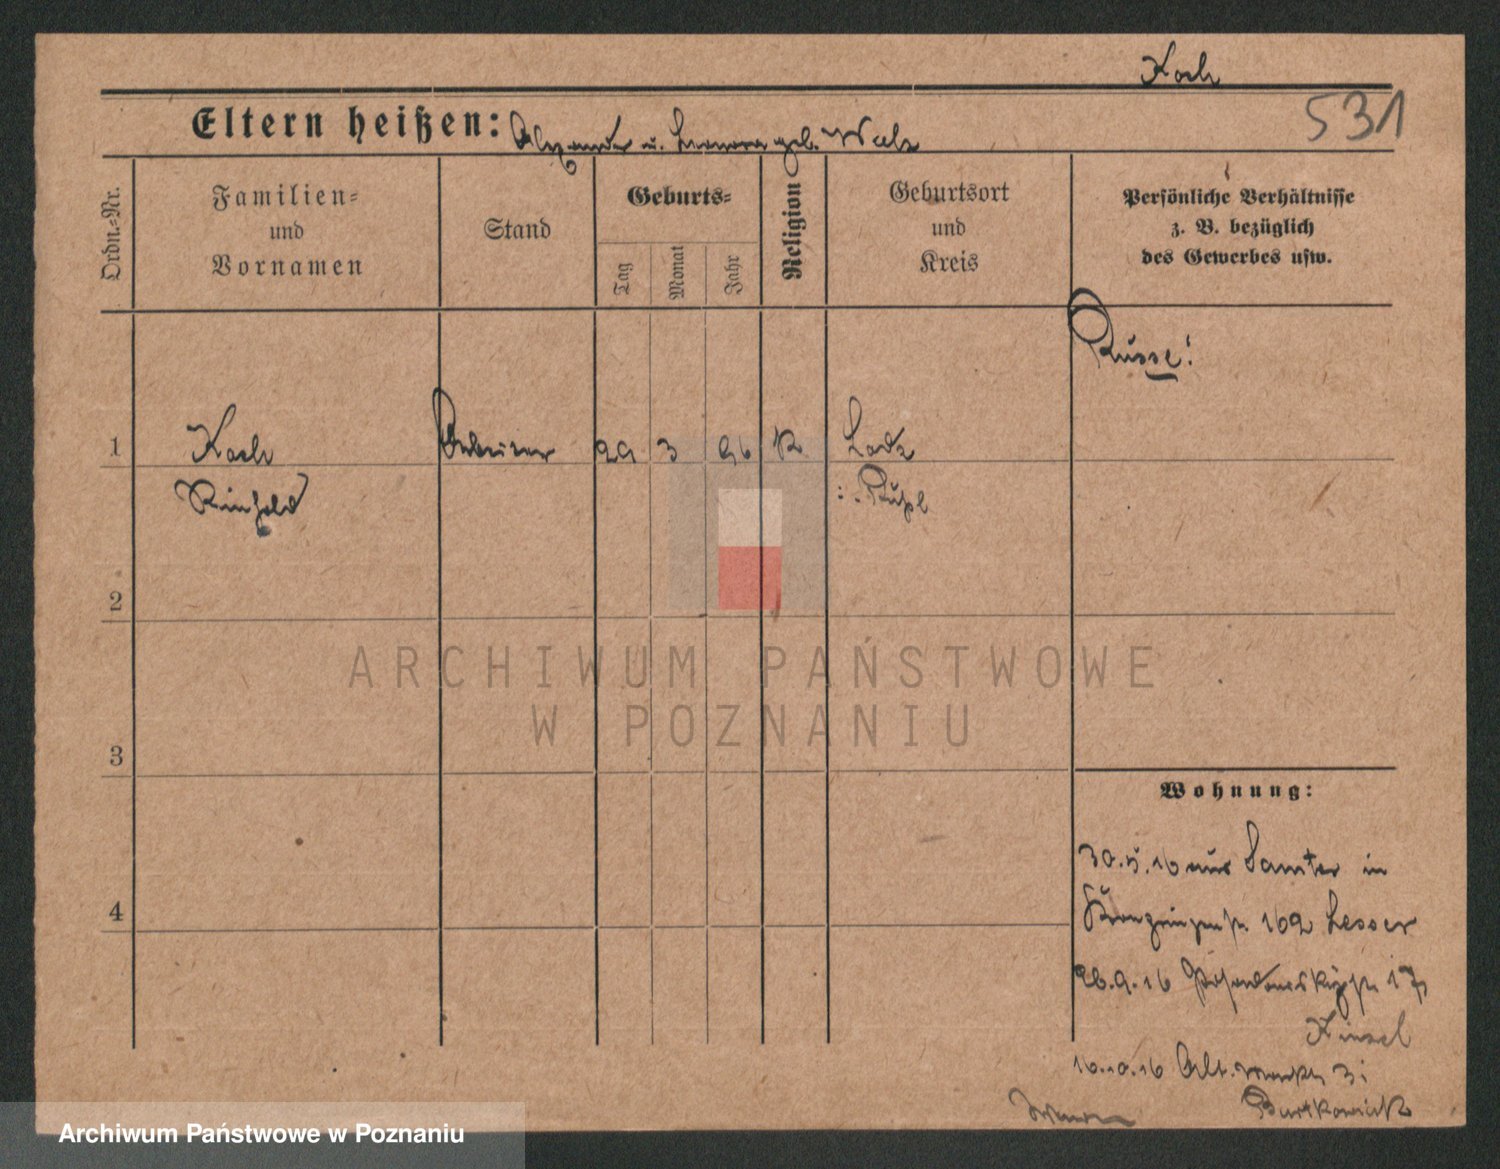 Koch
531
Eltern heißen: Alexander u. geb.
Ordn.=Nr.
Familien=
und
Vornamen
Stand
Geburts=
Tag
Monat
Jahr
Religion
Geburtsort
und
Kreis
Persönliche Verhältnisse
z. B. bezüglich
des Gewerbes usw.
Russe!
1 Koch Arbeiter 29 3 96 K Lodz
Reinhold
: Rußl
2
3
4
ARCHIWUM PAŃSTWOWE
W POZNANIU
Wohnung:
30.5.16 aus Samter in
Kronprinzenstr 102 Lesser
26.9.16 17,
Kinzel
16.10.16 Alt. Markt 3:
Bartkowiak
Archiwum Państwowe w Poznaniu